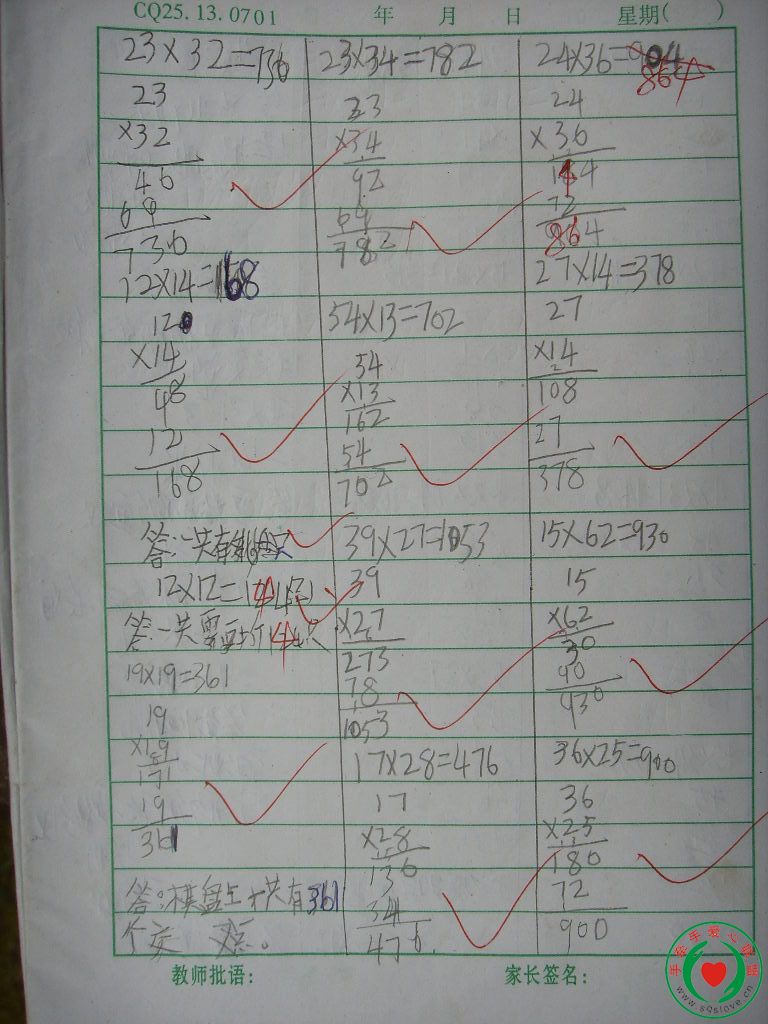 CQ25.13.0701 年 月 日 星期( )
23×32=736
23
×32
46
69
736
12×14=168
12
×14
48
12
168
答:一共有168
12×12=144
答:一共需要
19×19=361
19
×19
171
19
361
答:棋盘上一共有361
个交 点。
23×34=782
23
×34
92
69
782
54×13=702
54
×13
162
54
702
39×27=1053
39
×27
273
78
1053
17×28=476
17
×28
136
34
476
24×36=904
864
24
×36
144
72
864
27×14=378
27
×14
108
27
378
15×62=930
15
×62
30
90
930
36×25=900
36
×25
180
72
900
教师批语: 家长签名:
手牵手爱心联盟
www.sqslove.cn